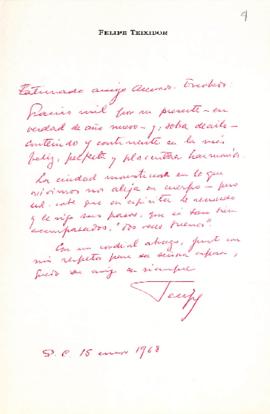 FELIPE TEIXIDOR
Estimado amigo
Gracias mil por su presente - en
verdad de año nuevo - y, sobra decirlo -
contenido y continente en la más
feliz, perfecta y placentera harmonía.
La ciudad monstruosa en la que
vivimos nos aleja en cuerpo - pero
ud. sabe que en espíritu le recuerdo
y le sigo sus pasos, que es tan bien
acompasados, "dos veces buenos".
Con un cordial abrazo, junto con
mis respetos para su señora esposa,
quedo su amigo de siempre
S. C. 15 enero 1968